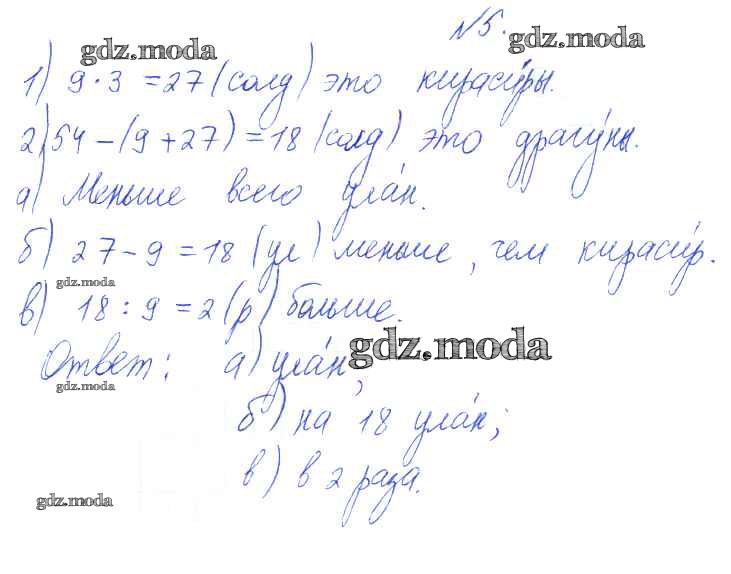 №5.
gdz.moda
gdz.moda
1) 9·3 =27 (солд) это кираси́ры.
2) 54-(9+27)=18 (солд) это драгу́ны.
а) Меньше всего ула́н.
б) 27-9=18 (ул) меньше, чем кираси́р.
gdz.moda
в) 18:9=2 (р) больше.
Ответ: а) ула́н,
gdz.moda
gdz.moda
б) на 18 ула́н;
в) в 2 раза.
gdz.moda